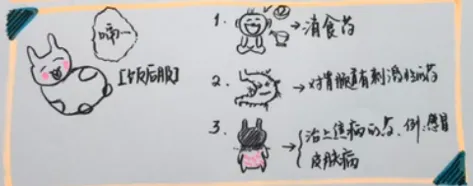 嗝一
[饭后服]
1. → 消食药
2. → 对胃肠道有刺激性的药
3. → {治上焦病的药、例:感冒
皮肤病